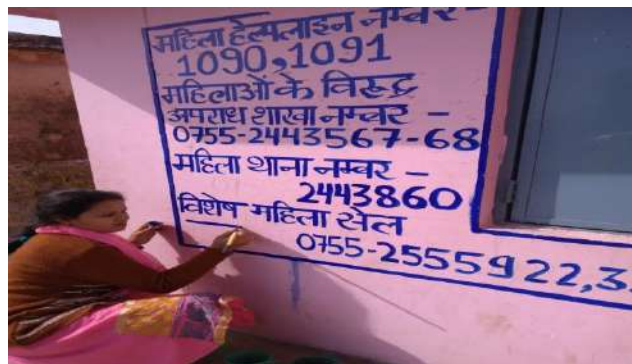 महिला हेल्पलाइन नम्बर -
1090,1091
महिलाओं के विरूद्ध
अपराध शाखा नम्बर -
0755-2443567-68
महिला थाना नम्बर -
2443860
विशेष महिला सेल
0755-2555922,3